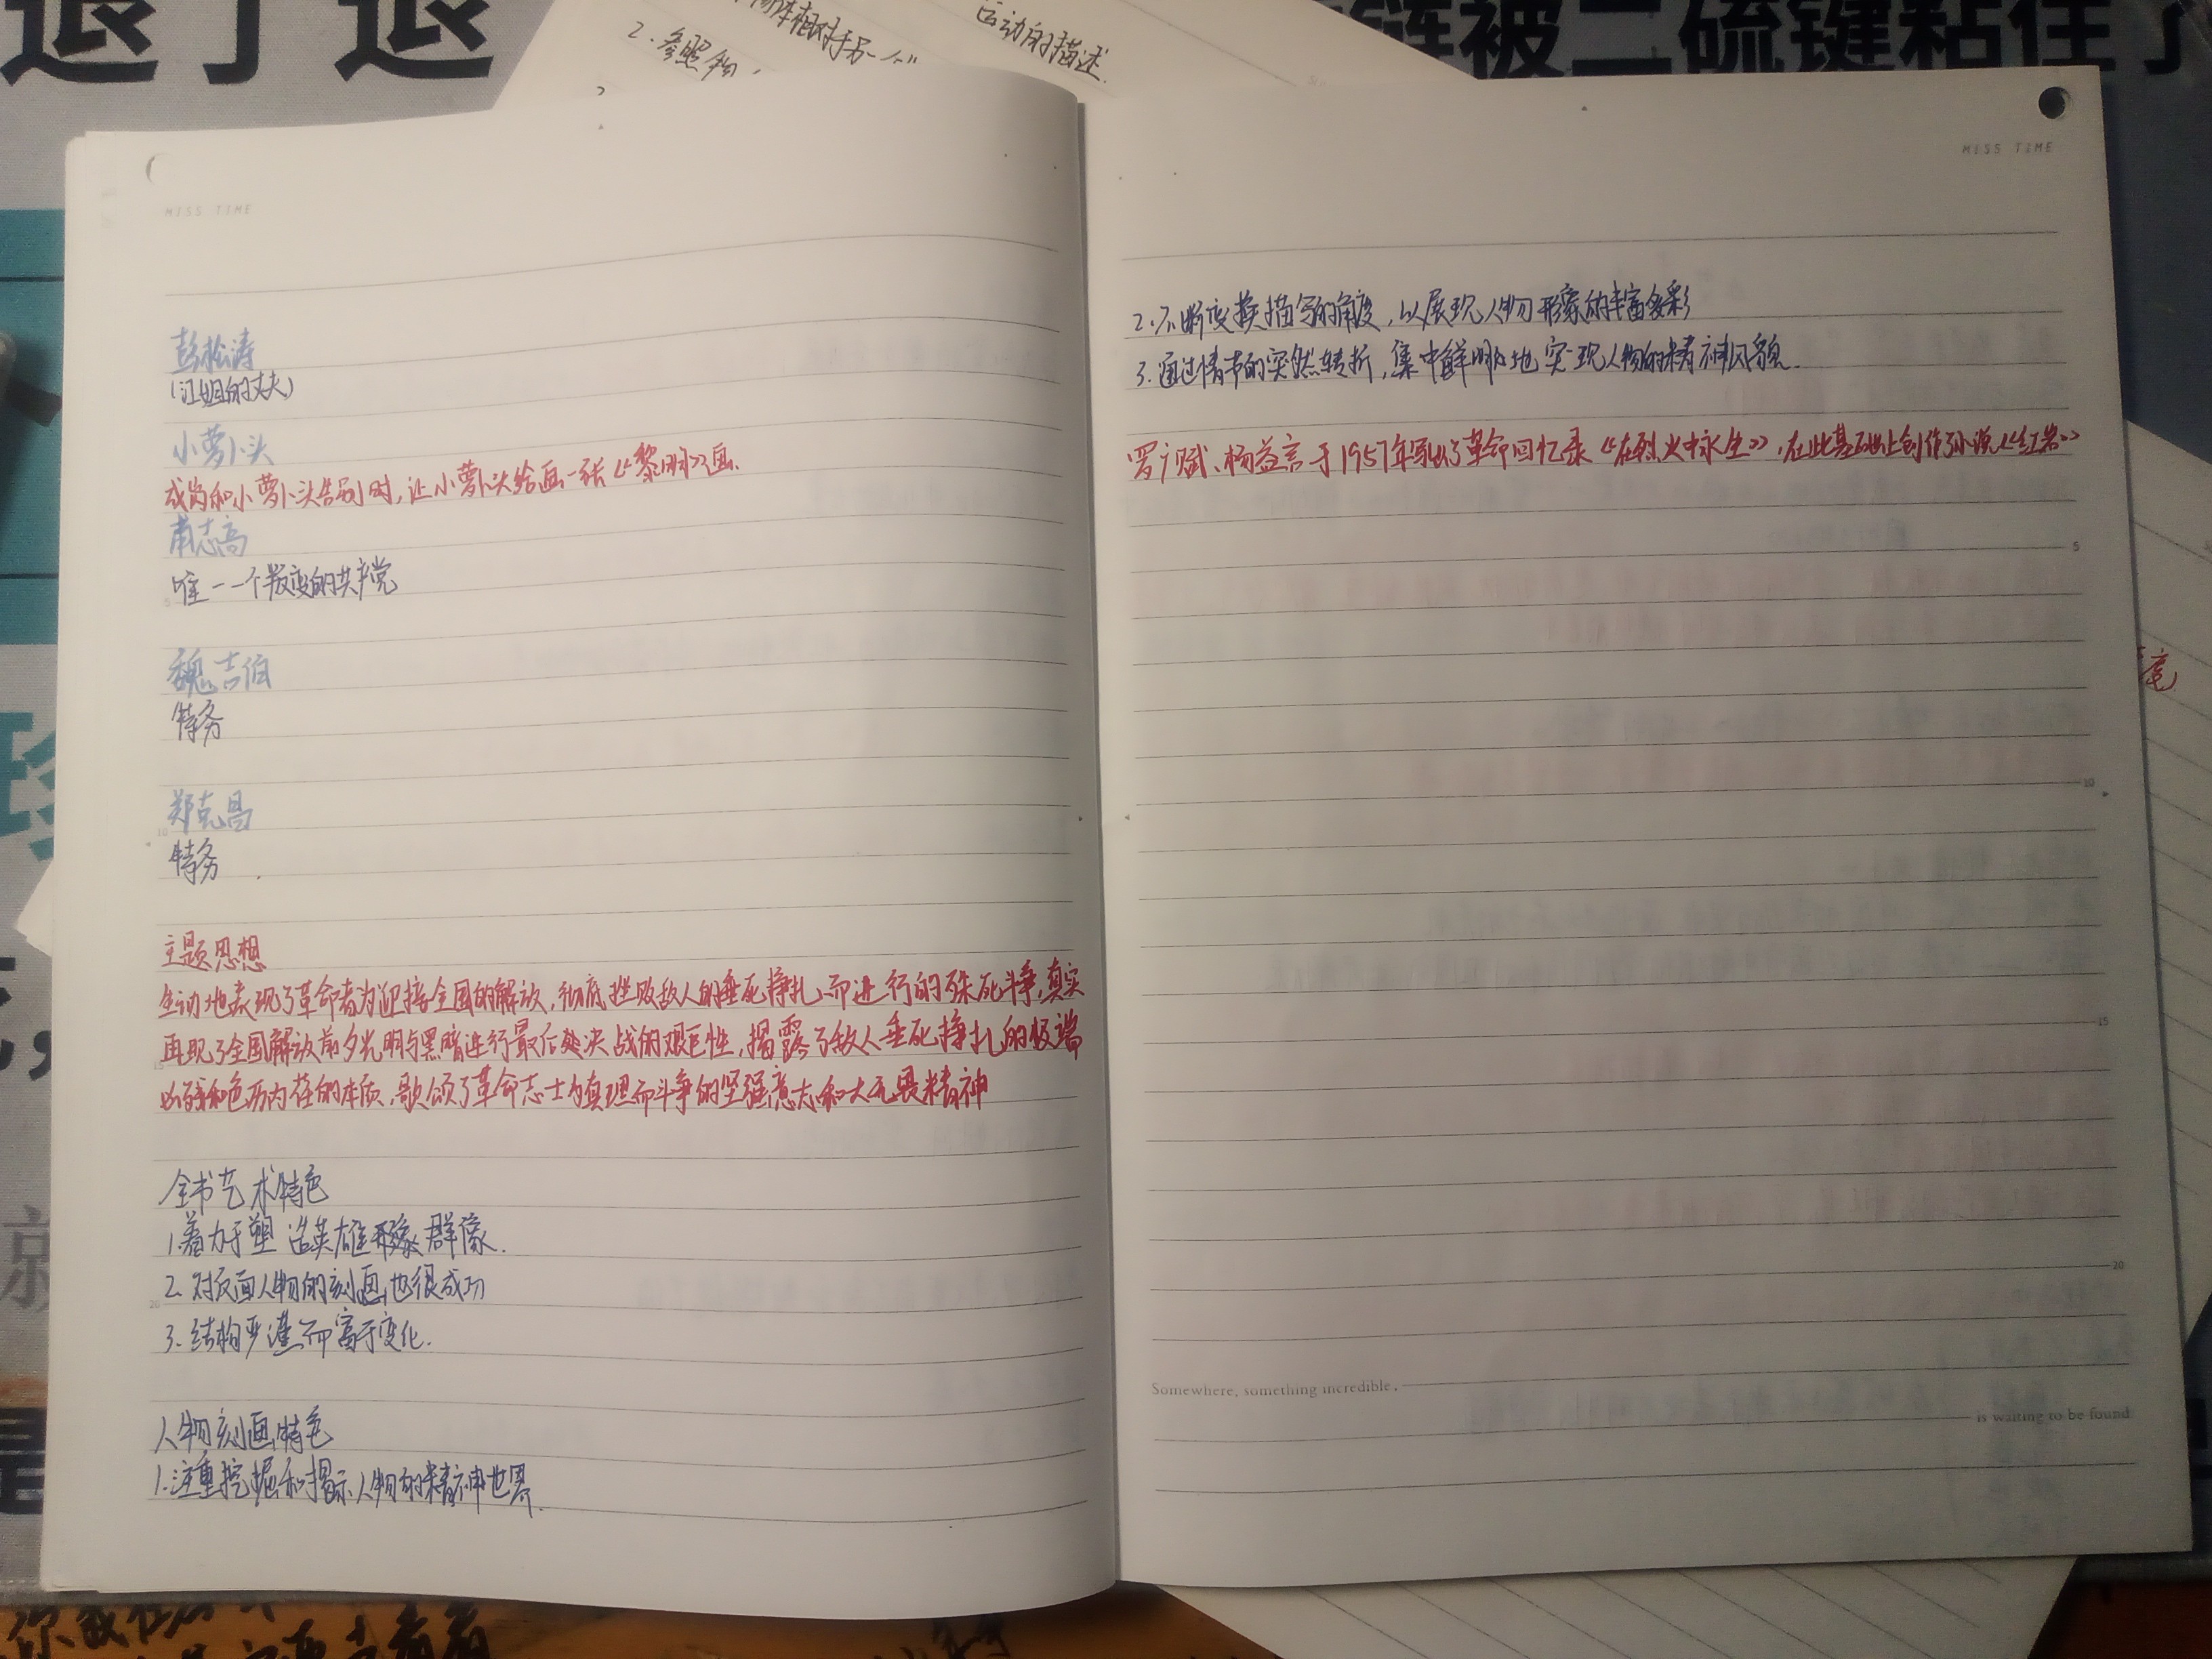 退了退
链被二硫键粘住了
物体相对于另一个
运动的描述.
2.参照物
MISS TIME
彭松涛
(江姐的丈夫)
小萝卜头
成岗和小萝卜头告别时,让小萝卜头给画一张《黎明》画.
甫志高
唯一一个叛变的共产党
5
魏吉伯
特务
郑克昌
10
特务
主题思想
生动地表现了革命者为迎接全国的解放,彻底挫败敌人的垂死挣扎而进行的殊死斗争,真实
再现了全国解放前夕光明与黑暗进行最后处决战的艰巨性,揭露了敌人垂死挣扎的极端
15
凶残和色厉内荏的本质,歌颂了革命志士为真理而斗争的坚强意志和大无畏精神
全书艺术特色
1.着力于塑造英雄形象群像.
2.对反面人物的刻画也很成功
20
3.结构严谨而富于变化.
人物刻画特色
1.注重挖掘和揭示人物的精神世界.
MISS TIME
2.不断变换描写的角度,以展现人物形象的丰富多彩
3.通过情节的突然转折,集中鲜明地突现人物的精神风貌.
罗广斌、杨益言于1957年写出了革命回忆录《在烈火中永生》,在此基础上创作了小说《红岩》
5
10
15
20
Somewhere, something incredible,
is waiting to be found